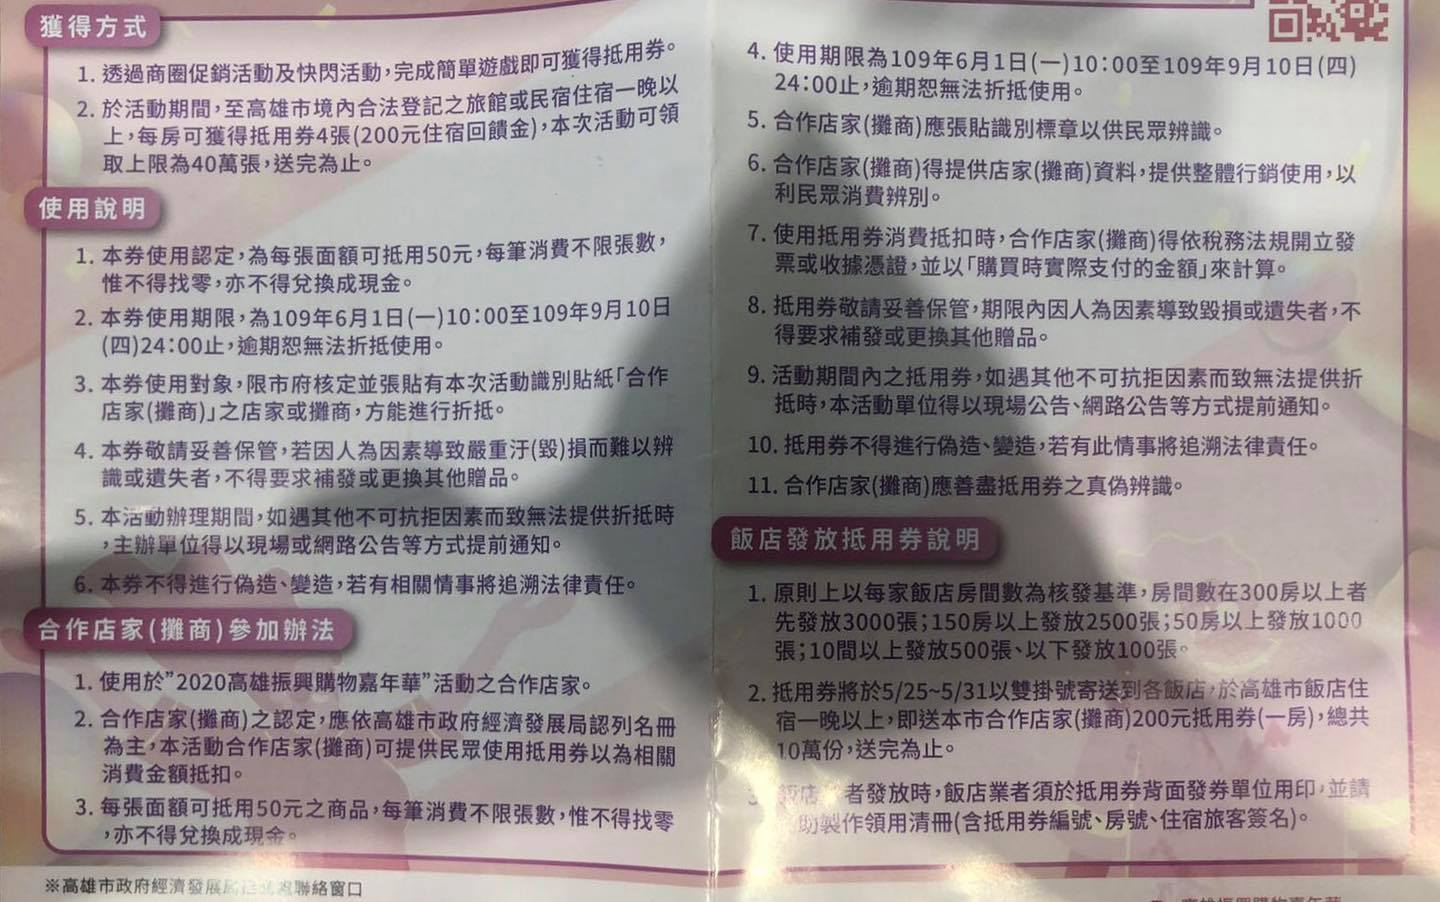 獲得方式
1. 透過商圈促銷活動及快閃活動，完成簡單遊戲即可獲得抵用券。
2. 於活動期間，至高雄市境內合法登記之旅館或民宿住宿一晚以
上，每房可獲得抵用券4張(200元住宿回饋金)，本次活動可領
取上限為40萬張，送完為止。
使用說明
1. 本券使用認定，為每張面額可抵用50元，每筆消費不限張數，
惟不得找零，亦不得兌換成現金。
2. 本券使用期限，為109年6月1日(一)10:00至109年9月10日
(四)24:00止，逾期恕無法折抵使用。
3. 本券使用對象，限市府核定並張貼有本次活動識別貼紙「合作
店家(攤商)」之店家或攤商，方能進行折抵。
4. 本券敬請妥善保管，若因人為因素導致嚴重汙(毀)損而難以辨
識或遺失者，不得要求補發或更換其他贈品。
5. 本活動辦理期間，如遇其他不可抗拒因素而致無法提供折抵時
，主辦單位得以現場或網路公告等方式提前通知。
6. 本券不得進行偽造、變造，若有相關情事將追溯法律責任。
合作店家(攤商)參加辦法
1. 使用於”2020高雄振興購物嘉年華”活動之合作店家。
2. 合作店家(攤商)之認定，應依高雄市政府經濟發展局認列名冊
為主，本活動合作店家(攤商)可提供民眾使用抵用券以為相關
消費金額抵扣。
3. 每張面額可抵用50元之商品，每筆消費不限張數，惟不得找零
，亦不得兌換成現金。
※高雄市政府經濟發展 聯絡窗口
4. 使用期限為109年6月1日(一)10:00至109年9月10日(四)
24:00止，逾期恕無法折抵使用。
5. 合作店家(攤商)應張貼識別標章以供民眾辨識。
6. 合作店家(攤商)得提供店家(攤商)資料，提供整體行銷使用，以
利民眾消費辨別。
7. 使用抵用券消費抵扣時，合作店家(攤商)得依稅務法規開立發
票或收據憑證，並以「購買時實際支付的金額」來計算。
8. 抵用券敬請妥善保管，期限內因人為因素導致毀損或遺失者，不
得要求補發或更換其他贈品。
9. 活動期間內之抵用券，如遇其他不可抗拒因素而致無法提供折
抵時，本活動單位得以現場公告、網路公告等方式提前通知。
10. 抵用券不得進行偽造、變造，若有此情事將追溯法律責任。
11. 合作店家(攤商)應善盡抵用券之真偽辨識。
飯店發放抵用券說明
1. 原則上以每家飯店房間數為核發基準，房間數在300房以上者
先發放3000張；150房以上發放2500張；50房以上發放1000
張；10間以上發放500張、以下發放100張。
2. 抵用券將於5/25~5/31以雙掛號寄送到各飯店，於高雄市飯店住
宿一晚以上，即送本市合作店家(攤商)200元抵用券(一房)，總共
10萬份，送完為止。
3. 飯店 者發放時，飯店業者須於抵用券背面發券單位用印，並請
助製作領用清冊(含抵用券編號、房號、住宿旅客簽名)。